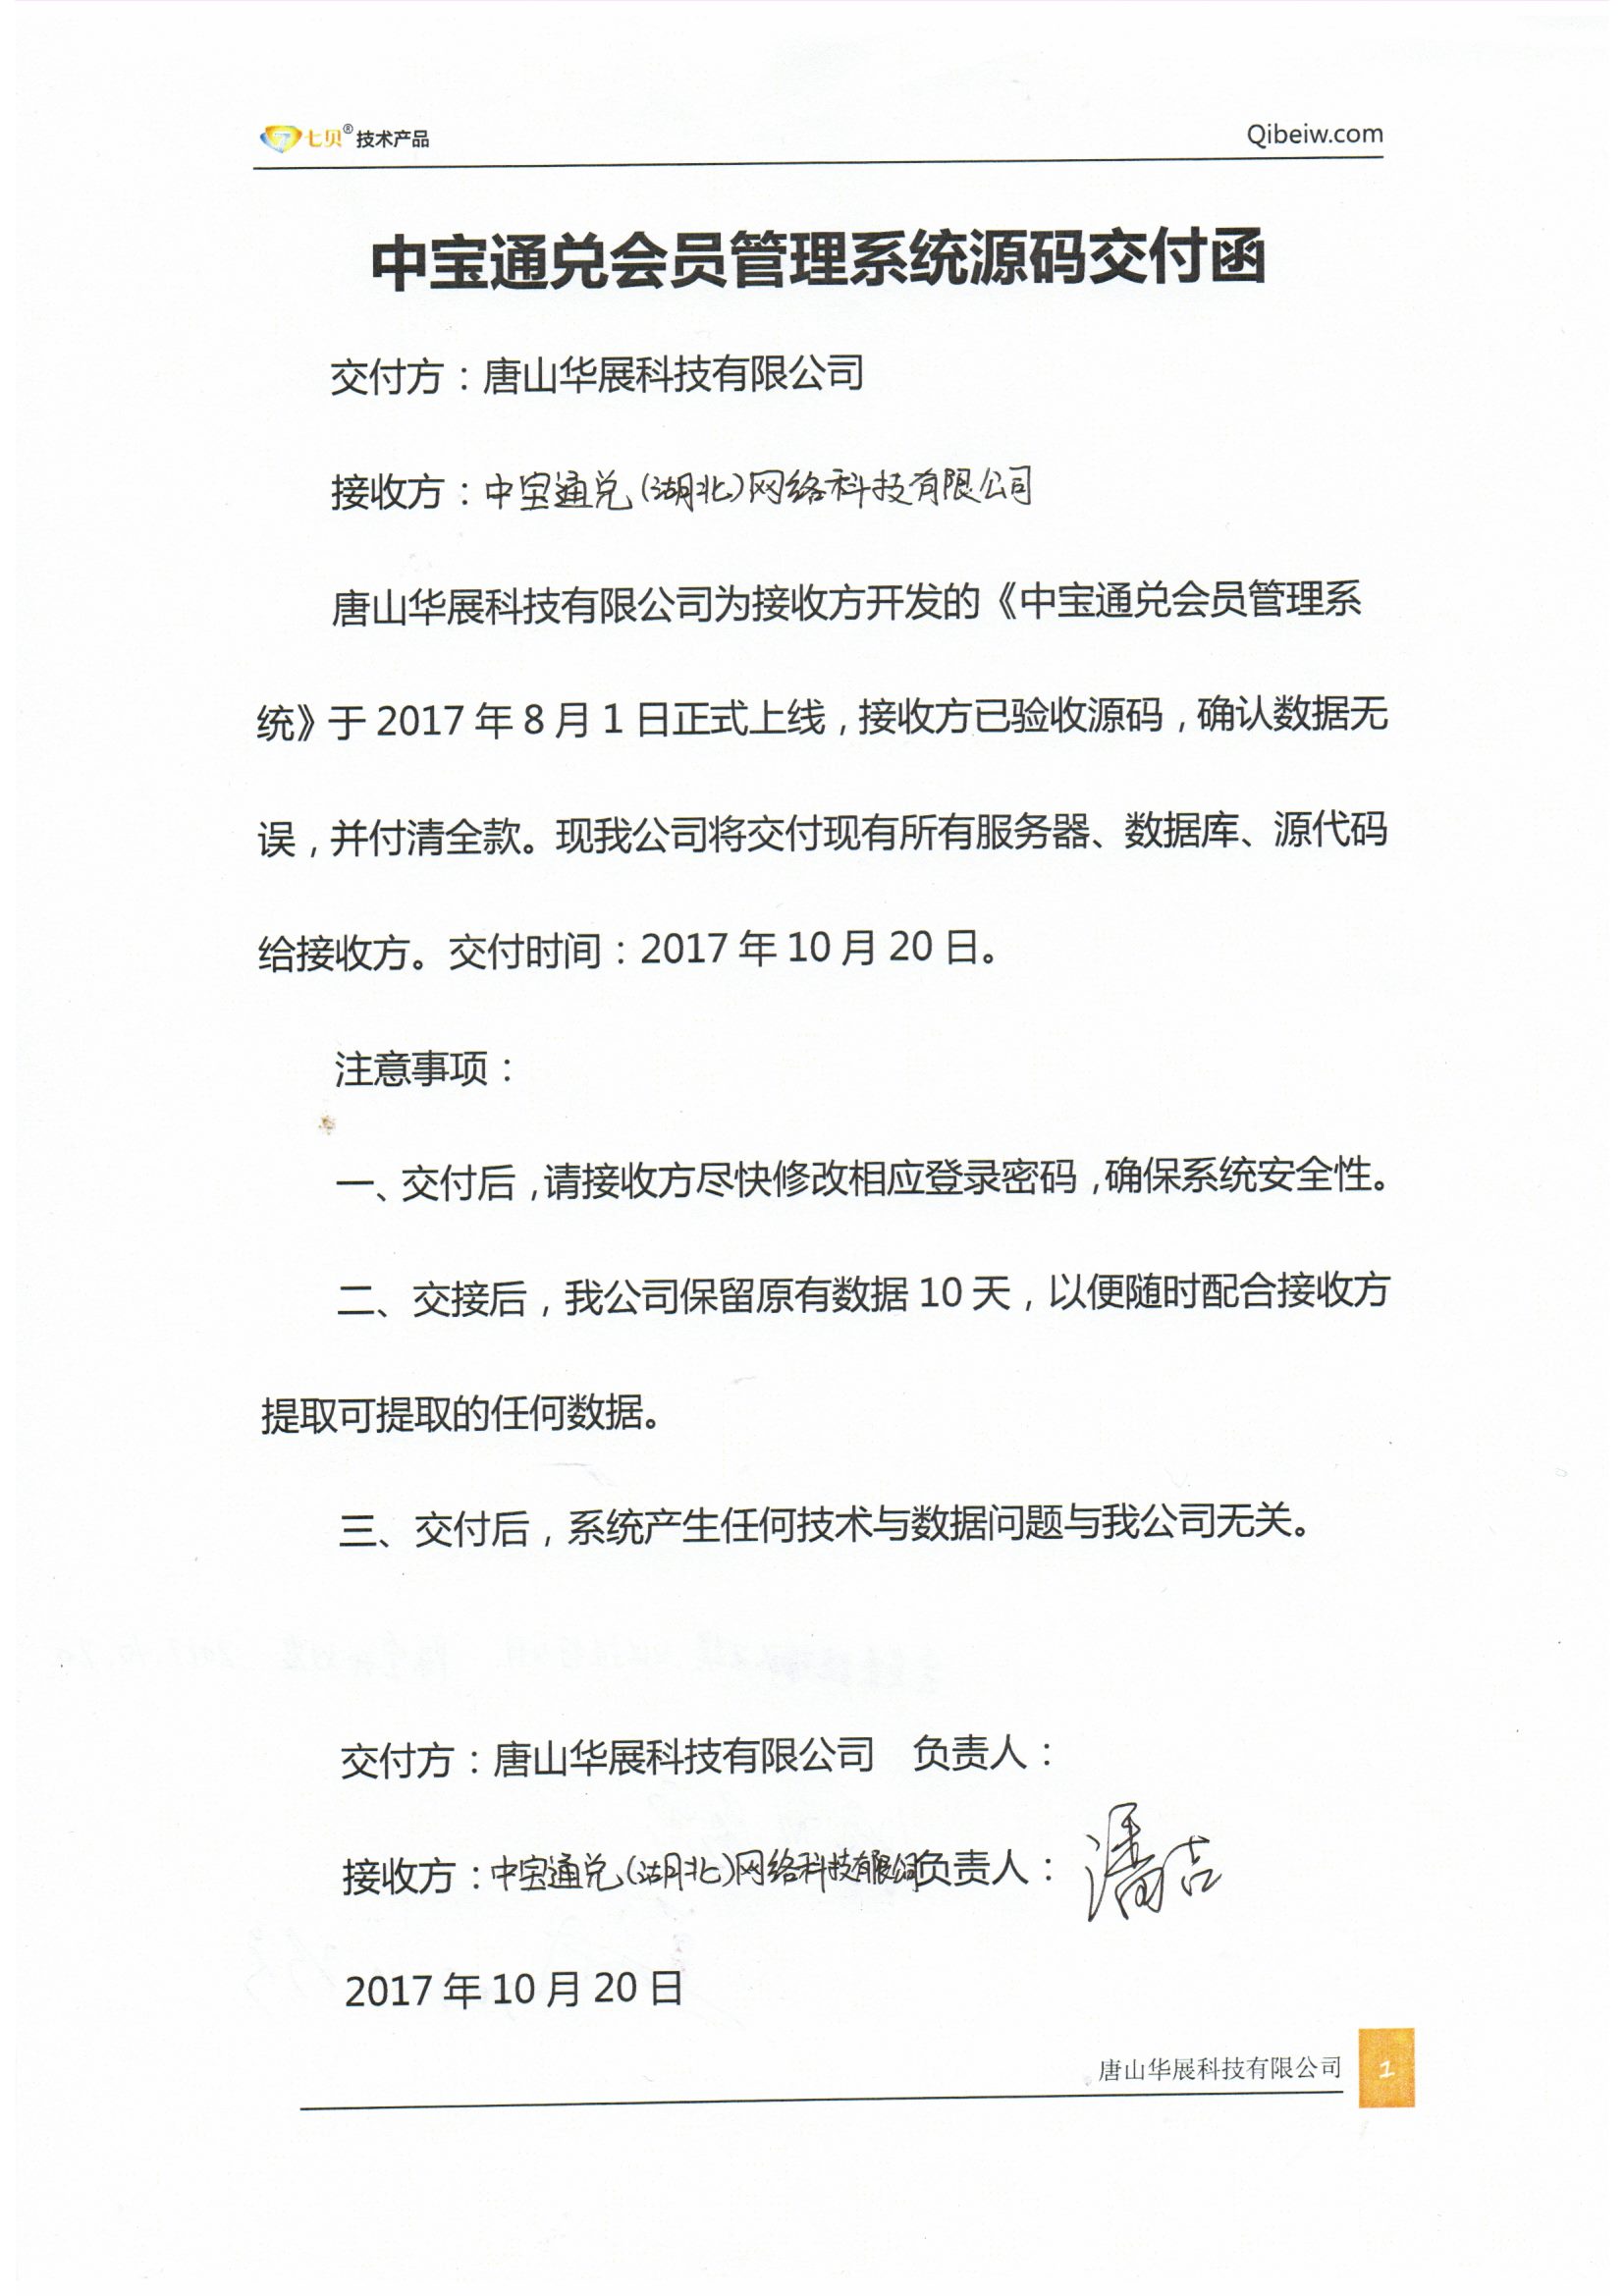 七贝®技术产品
Qibeiw.com
中宝通兑会员管理系统源码交付函
交付方：唐山华展科技有限公司
接收方：中宝通兑（湖北）网络科技有限公司
唐山华展科技有限公司为接收方开发的《中宝通兑会员管理系
统》于 2017 年 8 月 1 日正式上线，接收方已验收源码，确认数据无
误，并付清全款。现我公司将交付现有所有服务器、数据库、源代码
给接收方。交付时间：2017 年 10 月 20 日。
注意事项：
一、交付后，请接收方尽快修改相应登录密码，确保系统安全性。
二、交接后，我公司保留原有数据 10 天，以便随时配合接收方
提取可提取的任何数据。
三、交付后，系统产生任何技术与数据问题与我公司无关。
交付方：唐山华展科技有限公司 负责人：
接收方：中宝通兑（湖北）网络科技有限公司负责人：潘吉
2017 年 10 月 20 日
唐山华展科技有限公司 1